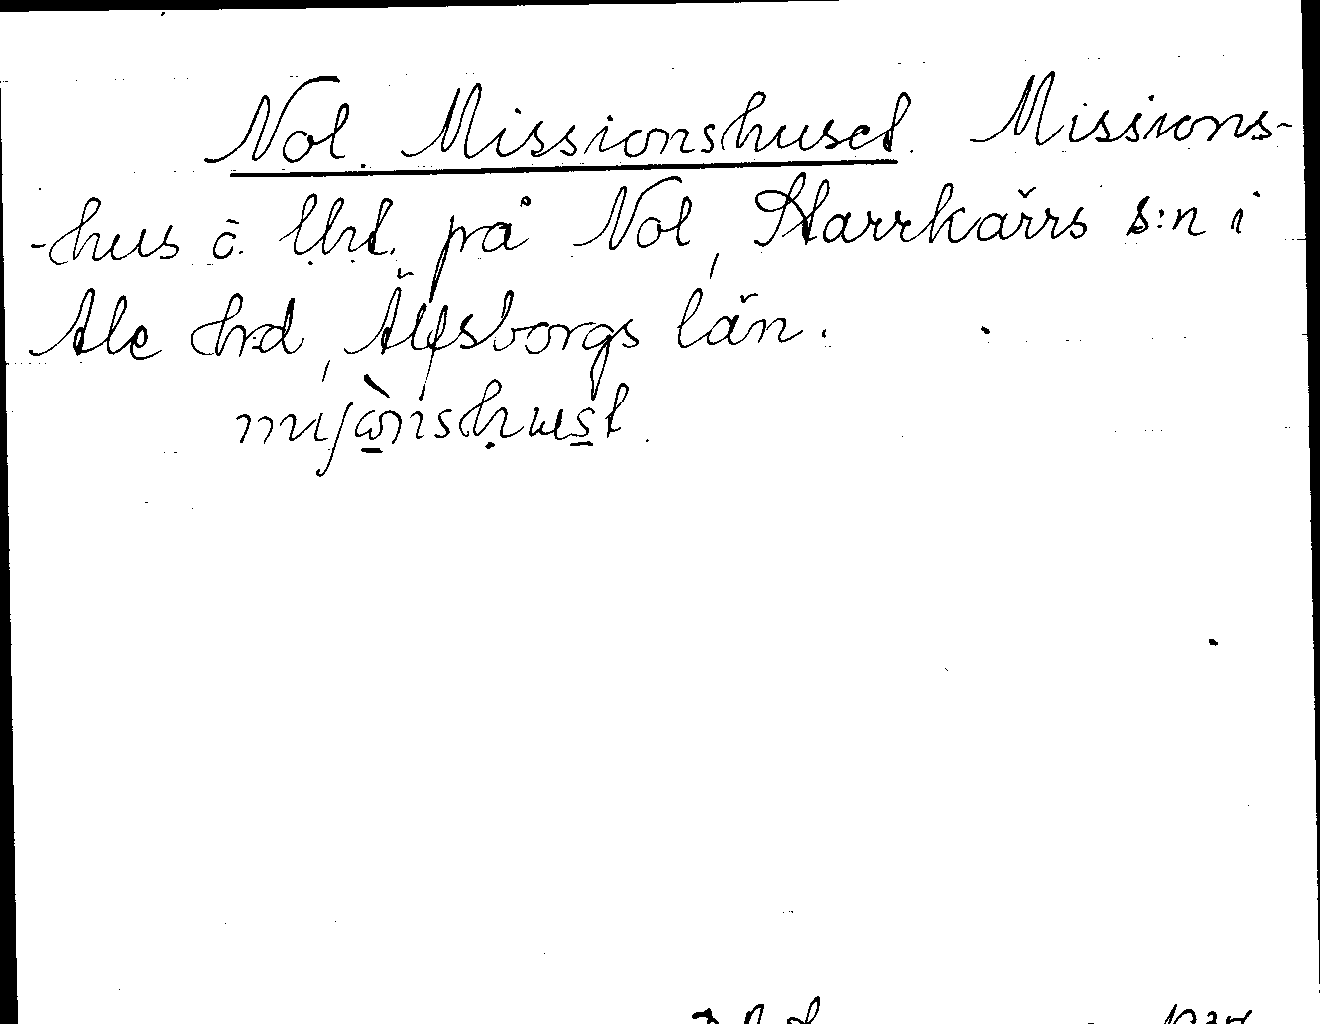 Nol. Missionshuset. Missions-
-hus å l.h.t. på Nol, Starrkärrs s:n i
Ale hrd, Älfsborgs län.